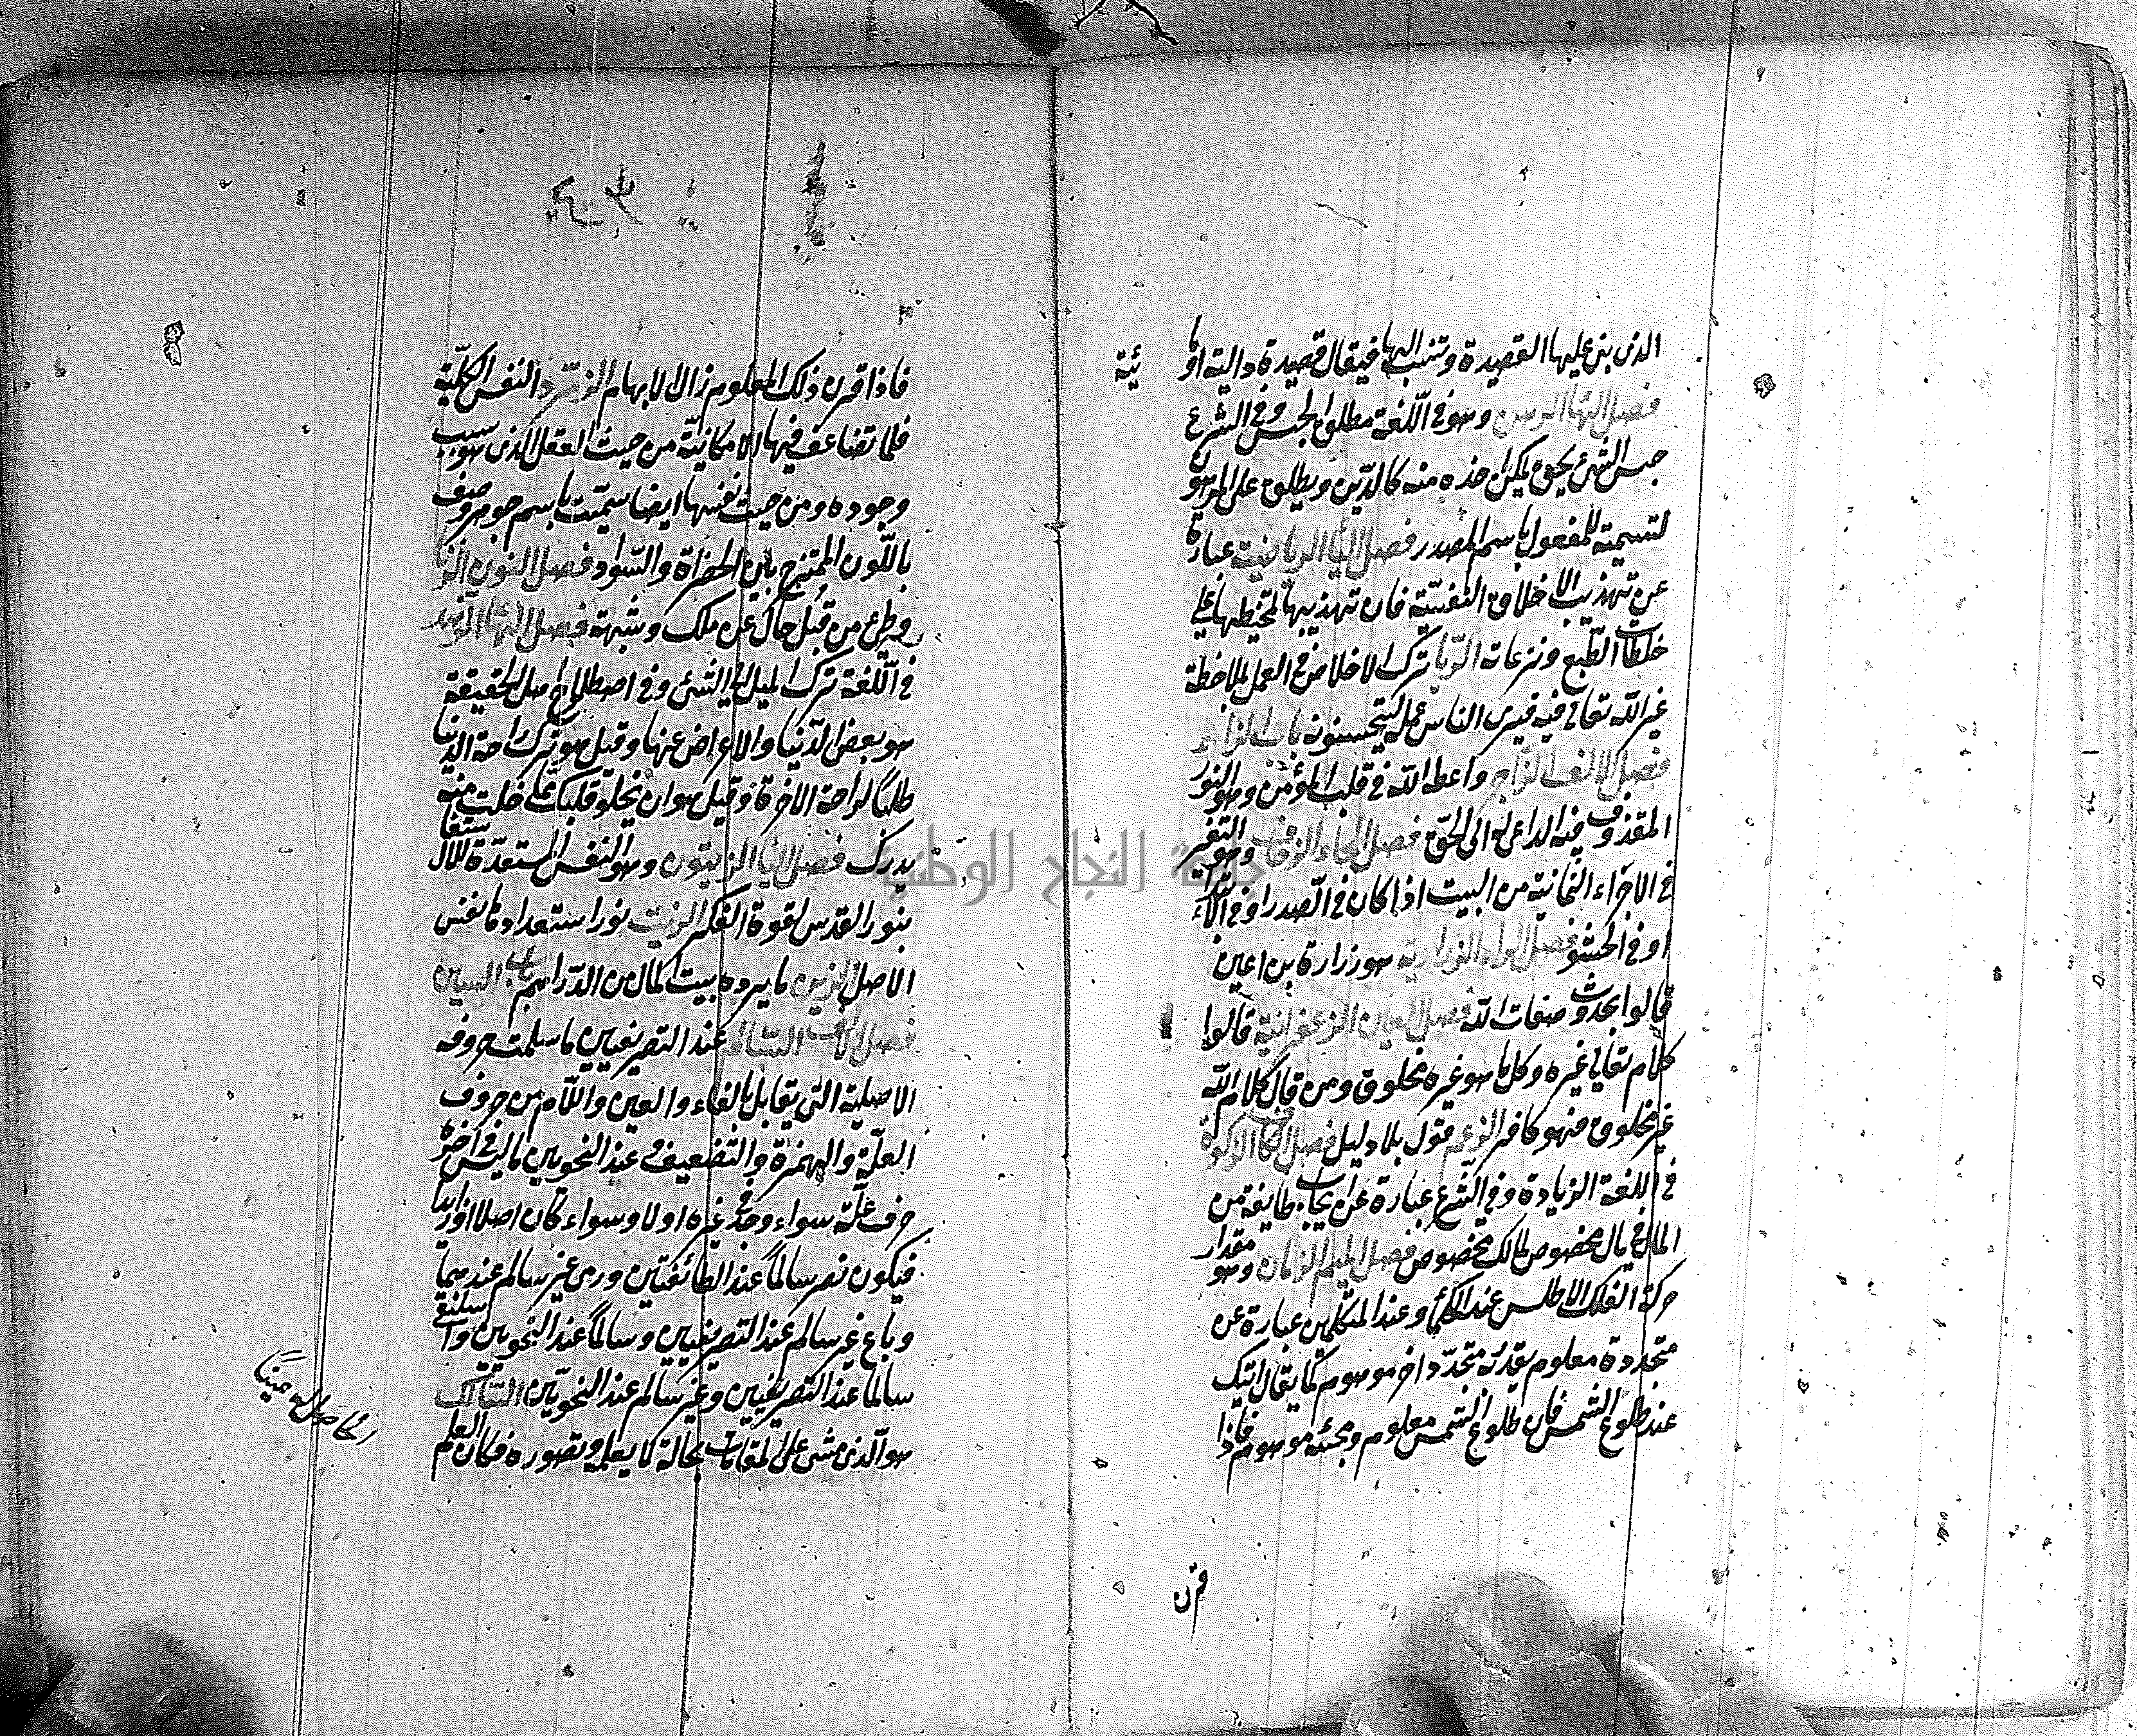 الذى بنى عليها القصيدة وتنسب اليها فيقال قصيدة دالية او تا
ئية
فصل الهاء الرهن وهو فى اللغة مطلق الحبس وفى الشرع
حبس الشئ بحق يمكن اخذه منه كالدّين ويطلق على المرهون
لتسمية المفعول باسم المصدر فصل اليا الرياضية عبارة
عن تهذيب الاخلاق النفسية فان تهذيبها تمحيطها على
خلطات الطبع ونزعاته الريا ترك الاخلاص فى العمل لملاحظة
غير اللّه تعالى فيه فيرى الناس عمله ليتحسنونه باب الزاء
فصل الالف الزاجر واعظ اللّه فى قلب المؤمن وهو النور
المقذوف فيه الداعى له الى الحق فصل الحاء الزحاف وهو التغير
فى الاجزاء الثمانية من البيت اذا كان فى الصدر او فى الابتداء
او فى الحشو فصل الراء الزرارية هو زرارة بن اعين
قالوا بحدوث صفات اللّه فصل العين الزعفرانية قالوا
كلام تعالى غيره وكل ما هو غيره مخلوق ومن قال كلام اللّه
غير مخلوق فهو كافر الزعم قول بلا دليل فصل الكاف الزكوة
فى اللغة الزيادة وفى الشرع عبارة عن ايجاب طايفة من
المال فى مال مخصوص لمالك مخصوص فصل الميم الزمان وهو مقدار
حركة الفلك الاطلس عند الحكماء وعند المتكلمين عبارة عن
متجددة معلوم يقدر به متجدّد اخر موهوم كما يقال اتيك
عند طلوع الشمس فان طلوع الشمس معلوم ومجئه موهوم فاذا
قرن
فاذا قرن ذلك المعلوم زال الابهام الزمرد النفس الكلّية
فلما تضاعف فيها الامكانيّة من حيث العقل الذى هو سبب
وجوده ومن حيث نفسها ايضا سمّيت باسم جوهر وصف
باللّون الممتزج بين الخضرة والسّواد فصل النون الزنا
وطئ من قبل خال عن ملك وشبهة فصل الهاء الزهد
فى اللّغة ترك الميل الى الشئ وفى اصطلاح اهل الحقيقة
هو بعض الدّنيا والاعراض عنها وقيل هو ترك راحة الدنيا
طلبًا لراحة الاخرة وقيل هو ان يخلو قلبك عمّا خلت منه
يدرك فصل اليا الزيتون وهو النفس المستعدّة للاشتعال
بنور القدس لقوة الفكر الزيت نور استعدادها بفنس
الاصل الزيوف ما يرده بيت المال من الدراهم باب السين
فصل الالف السالم عند التصريفيين ما سلمت حروفه
الاصلية التى تقابل بالفاء والعين واللام من حروف
العلّة والهمزة والتضعيف وعند النحويين ما ليس فى اخره
حرف علّة سواء وجد فى غيره اولا وسواء كان اصلا او زايدا
فيكون نصر سالمًا عند الطائفتين ورمى غير سالم عندهما
وباع غير سالم عند التصريفيين وسالمًا عند النحويين واسلنقى
سالما عند التصريفيين وغير سالم عند النحويّين السالك
هو الّذى مشى على المقامات بحاله لا بعلمه وتصوره فكان العلم
الحاصل له عينًا
النجاح الوطنية